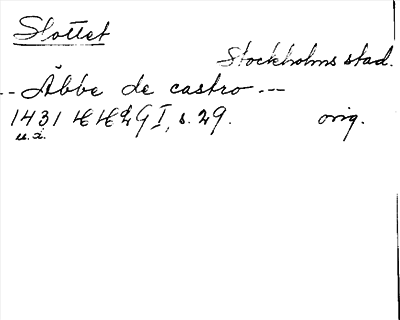 Slottet
Stockholms stad.
-- Åbbe de castro ---
1431 HH2G I, s. 29. orig.
u.å.